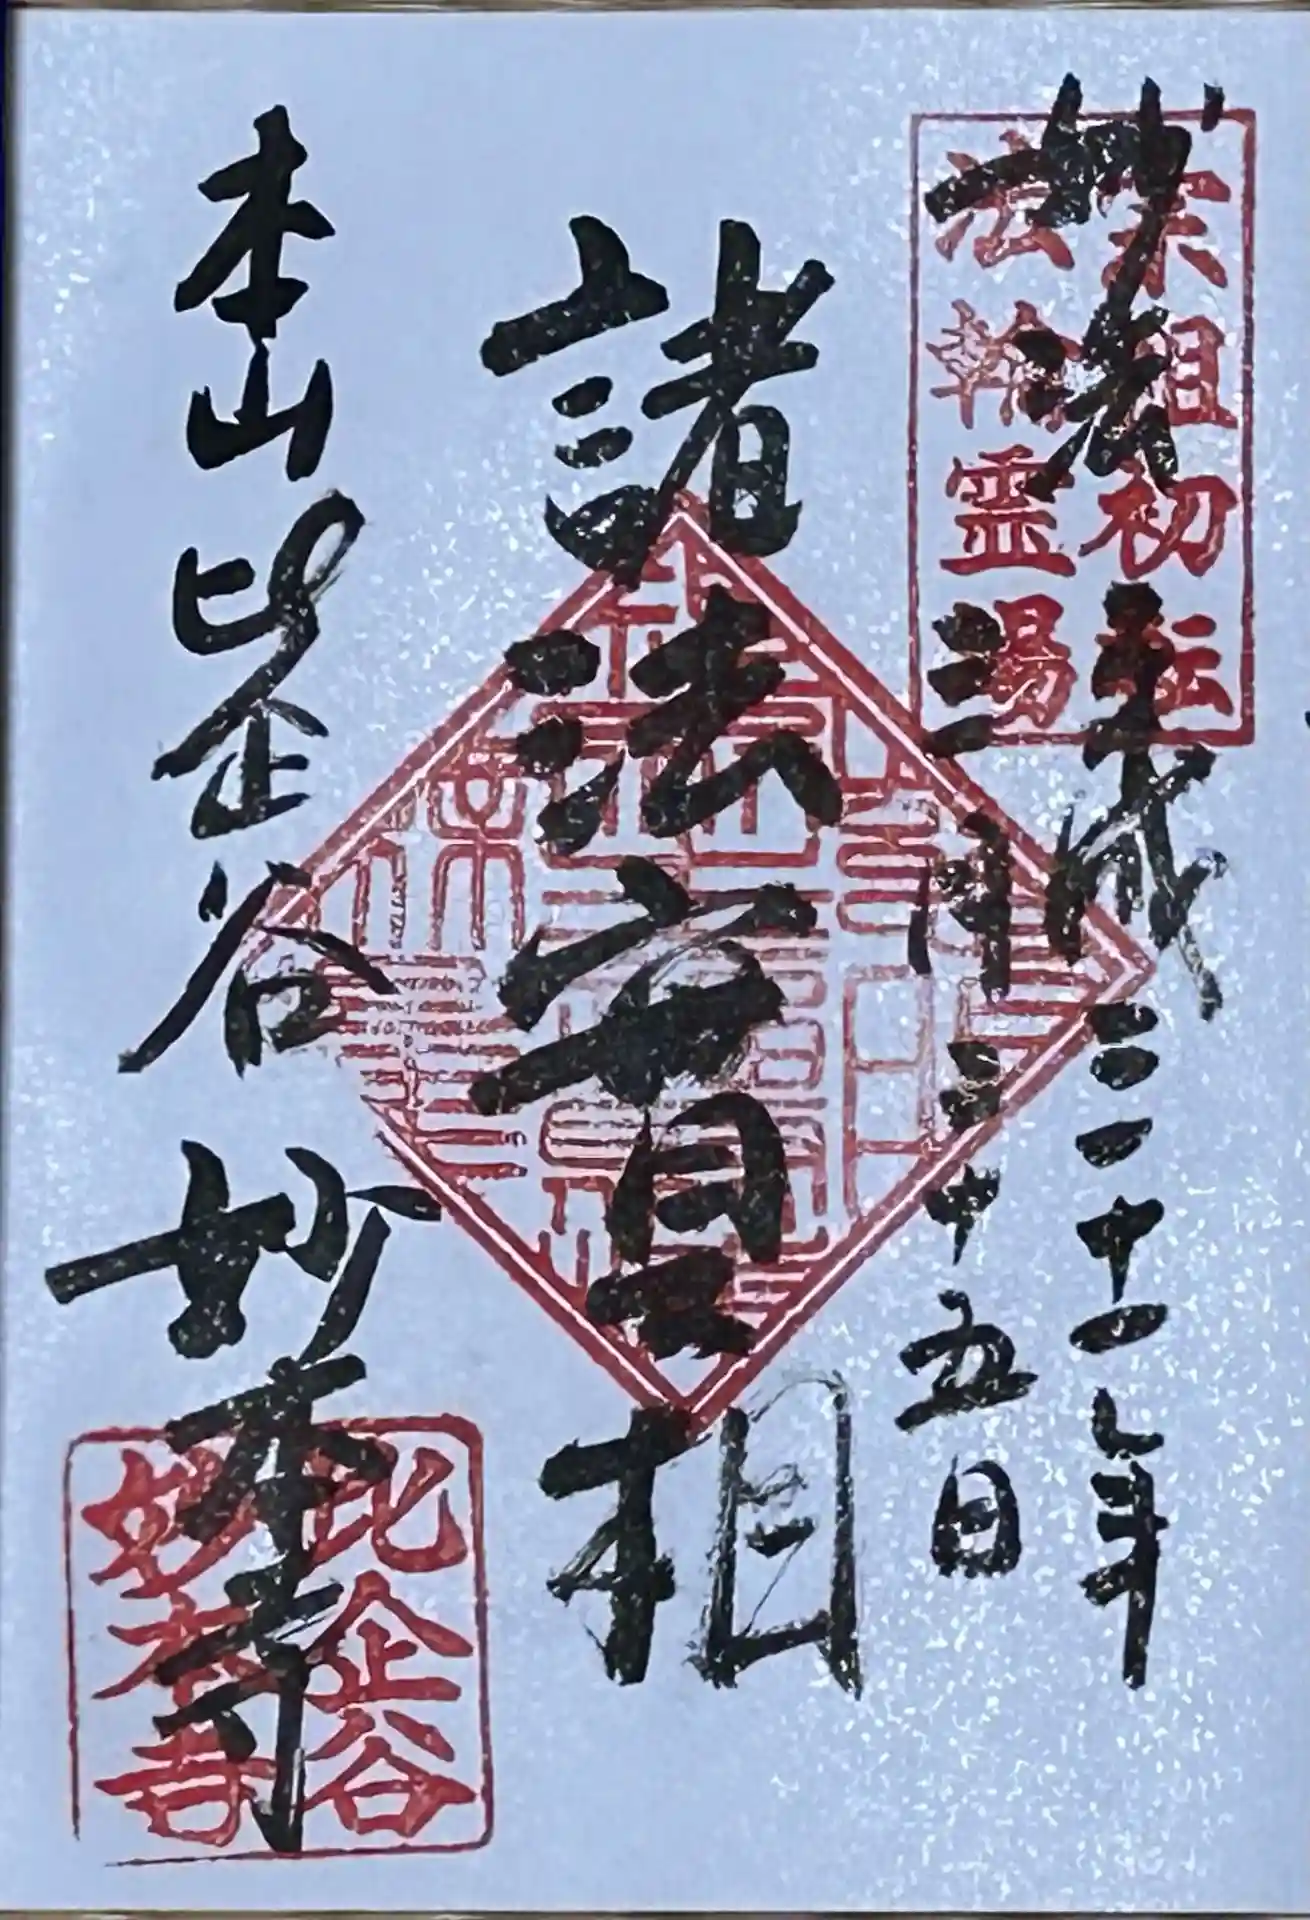 妙法
平成三十一年
三月二十五日
宗祖初転
法輪霊場
諸法實相
本山比企谷 妙本寺
比企谷
妙本寺